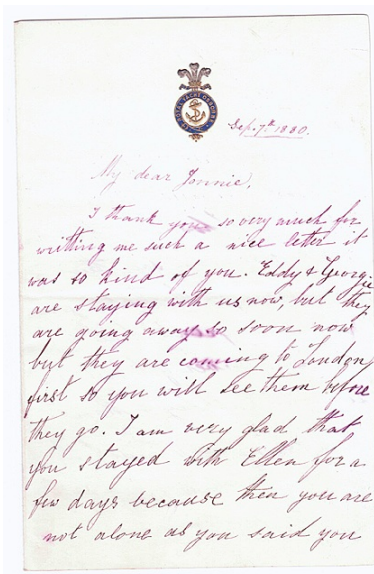 H.M. ROYAL YACHT OSBORNE
Sep. 7th 1880.
My dear Jonnie,
I thank you so very much for
writting me such a nice letter it
was so kind of you. Eddy & Georgie
are staying with us now, but they
are going away so soon now
but they are coming to London
first so you will see them before
they go. I am very glad that
you stayed with Ellen for a
few days because then you are
not alone as you said you